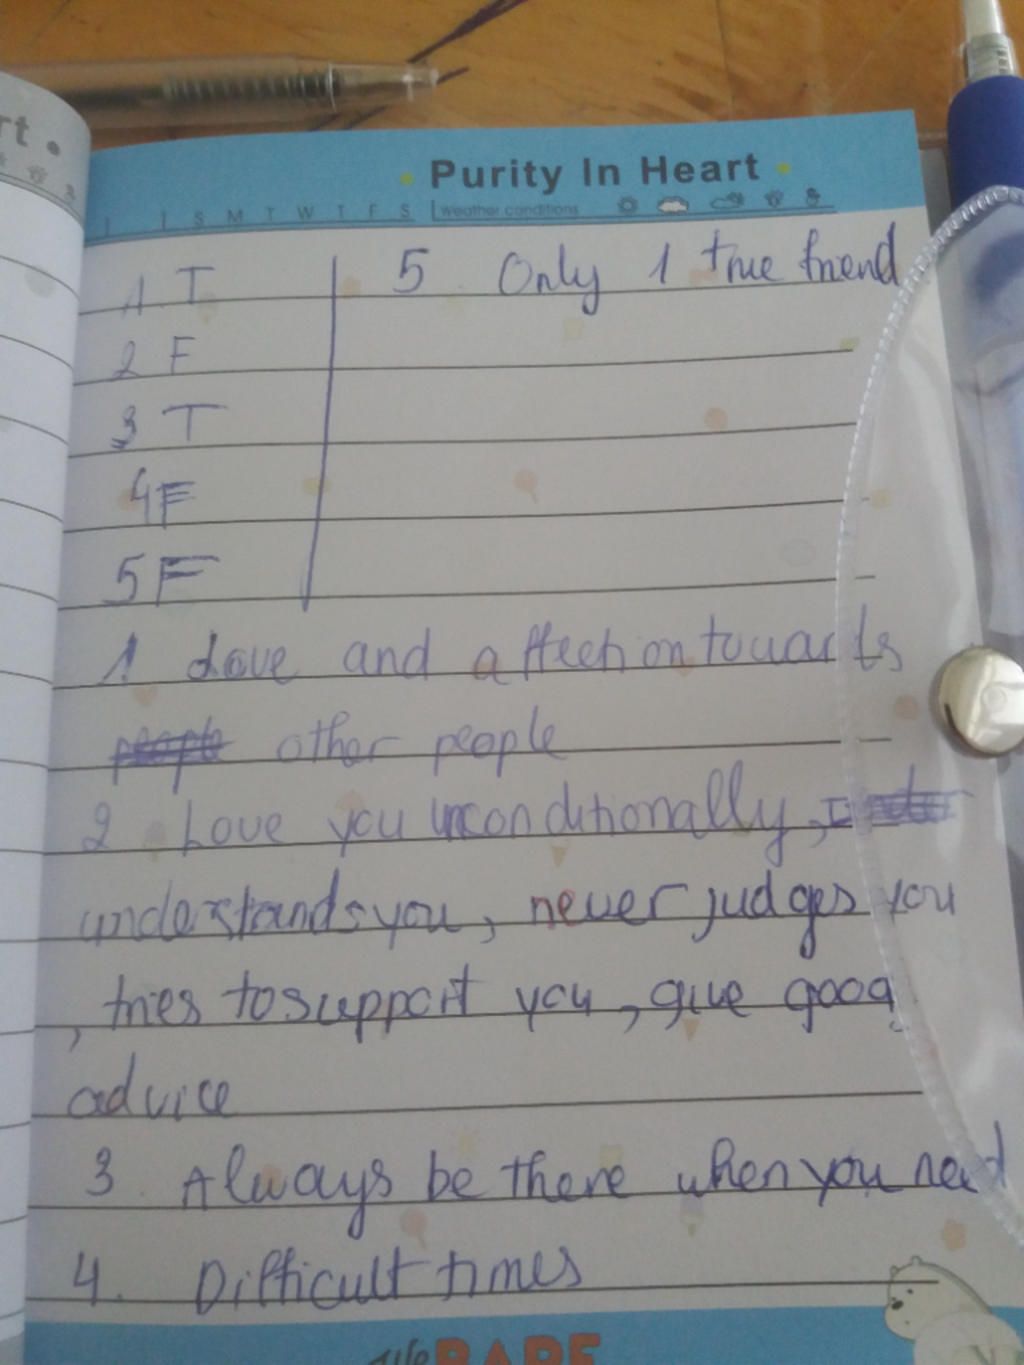 rt
Purity In Heart
S M T W T F S weather conditions
1 T
2 F
3 T
4 F
5 F
5 Only 1 true friend
1 Love and affection towards
people other people
2 Love you unconditionally,
understands you, never judges you
, tries to support you, give good
advice
3 Always be there when you need
4. Difficult times
We BARE